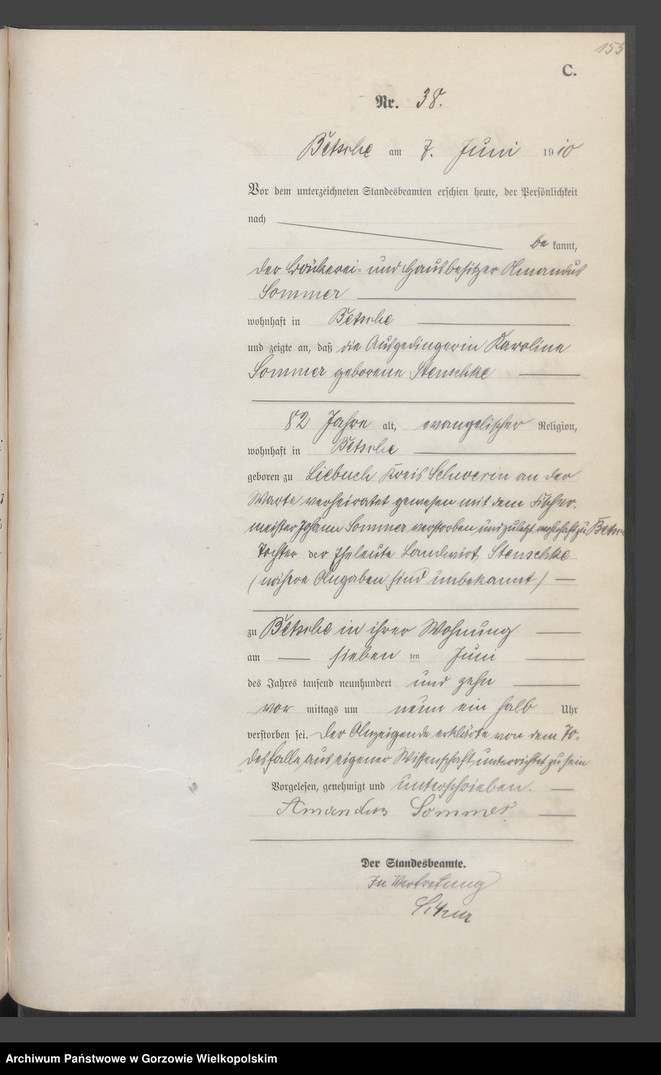 155
C.
Nr. 38.
Betsche am 7. Juni 1910
Vor dem unterzeichneten Standesbeamten erschien heute, der Persönlichkeit
nach
be kannt,
der Bäckerei- und Hausbesitzer Amandus
Sommer
wohnhaft in Betsche
und zeigte an, daß die Ausgedingerin Karoline
Sommer geborene Stenschke
82 Jahre alt, evangelischer Religion,
wohnhaft in Betsche
geboren zu Liebuch Kreis Schwerin an der
Warte verheiratet gewesen mit dem Fischer-
meister Johann Sommer verstorben und zuletzt wohnhaft zu Betsche
Tochter der Eheleute Landwirt Stenschke
(nähere Angaben sind unbekannt)
zu Betsche in ihrer Wohnung
am sieben ten Juni
des Jahres tausend neunhundert und zehn
vor mittags um neun ein halb Uhr
verstorben sei. Der Anzeigende erklärte von dem To-
desfalle aus eigener Wissenschaft unterrichtet zu sein
Vorgelesen, genehmigt und unterschrieben.
Amandus Sommer
Der Standesbeamte.
In Vertretung
Archiwum Państwowe w Gorzowie Wielkopolskim